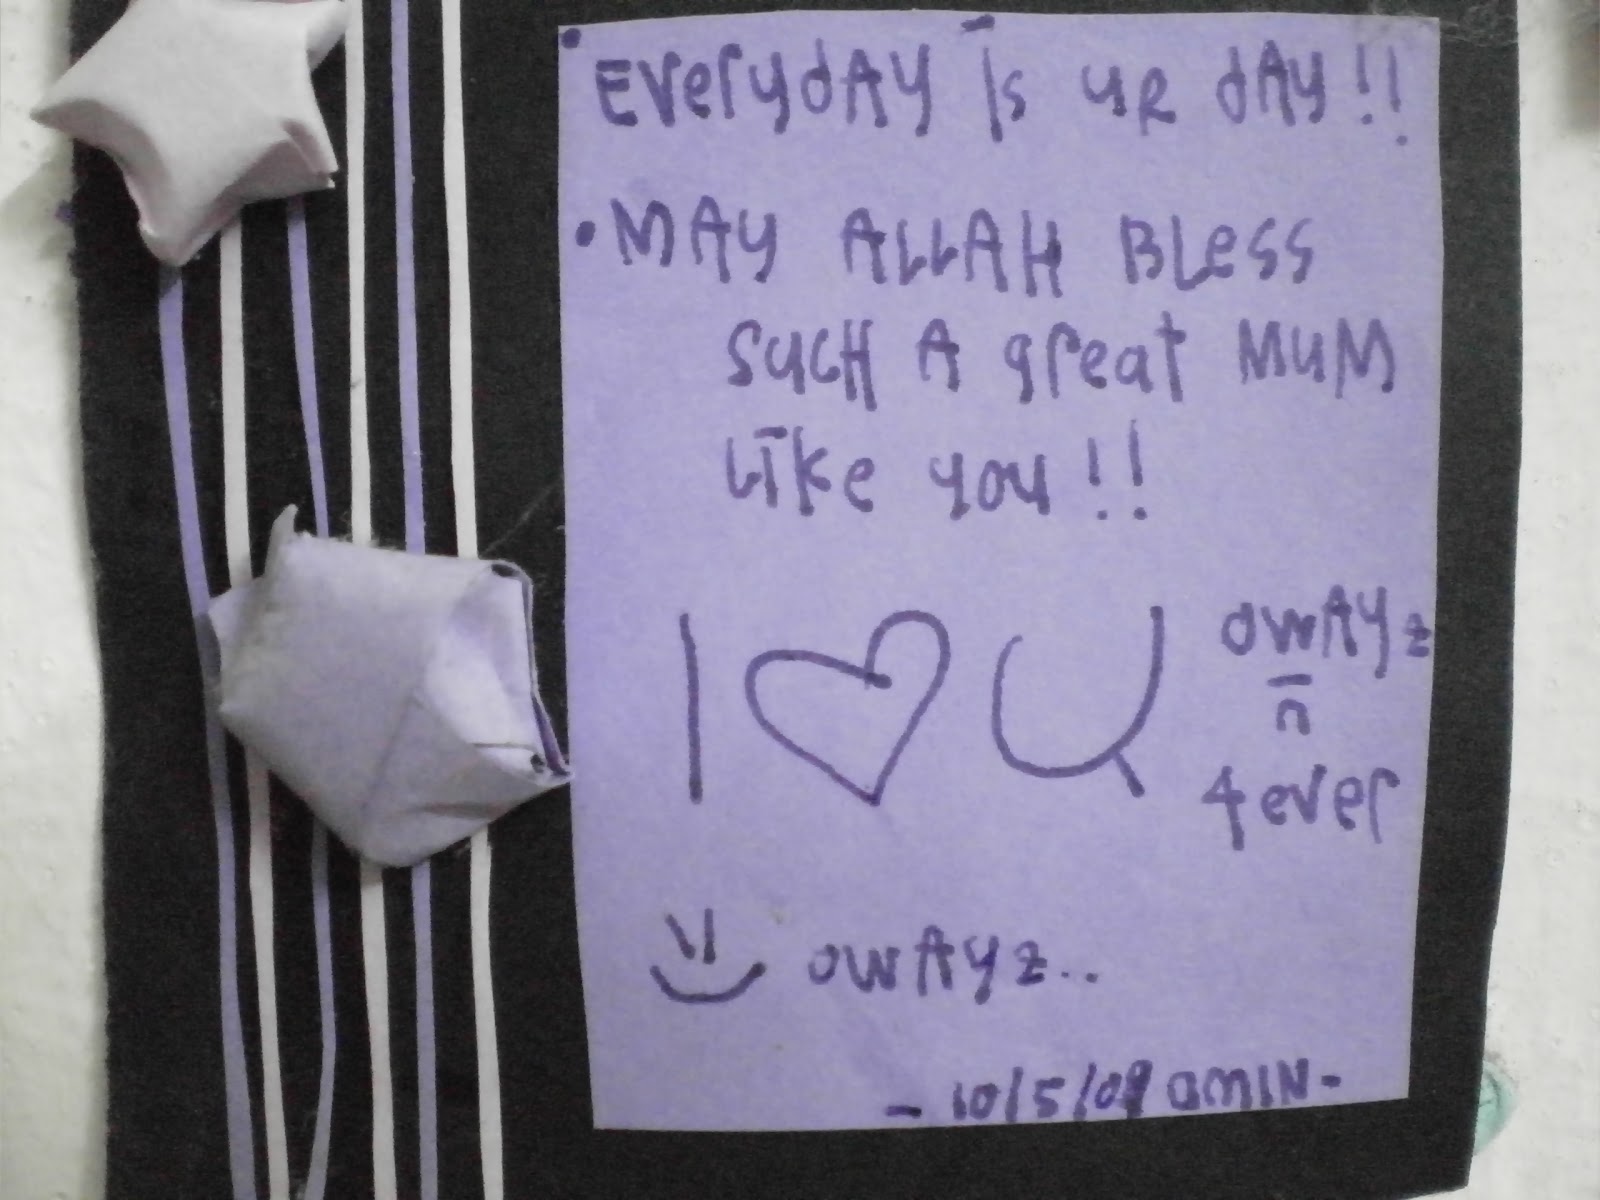 • EVerydAY Is uR dAy!!
• MAy ALLAH BLess
sucH A great MuM
Like you!!
I ♥ U owAyz
n
4ever
owAyz..
- 10/5/09 amIN -